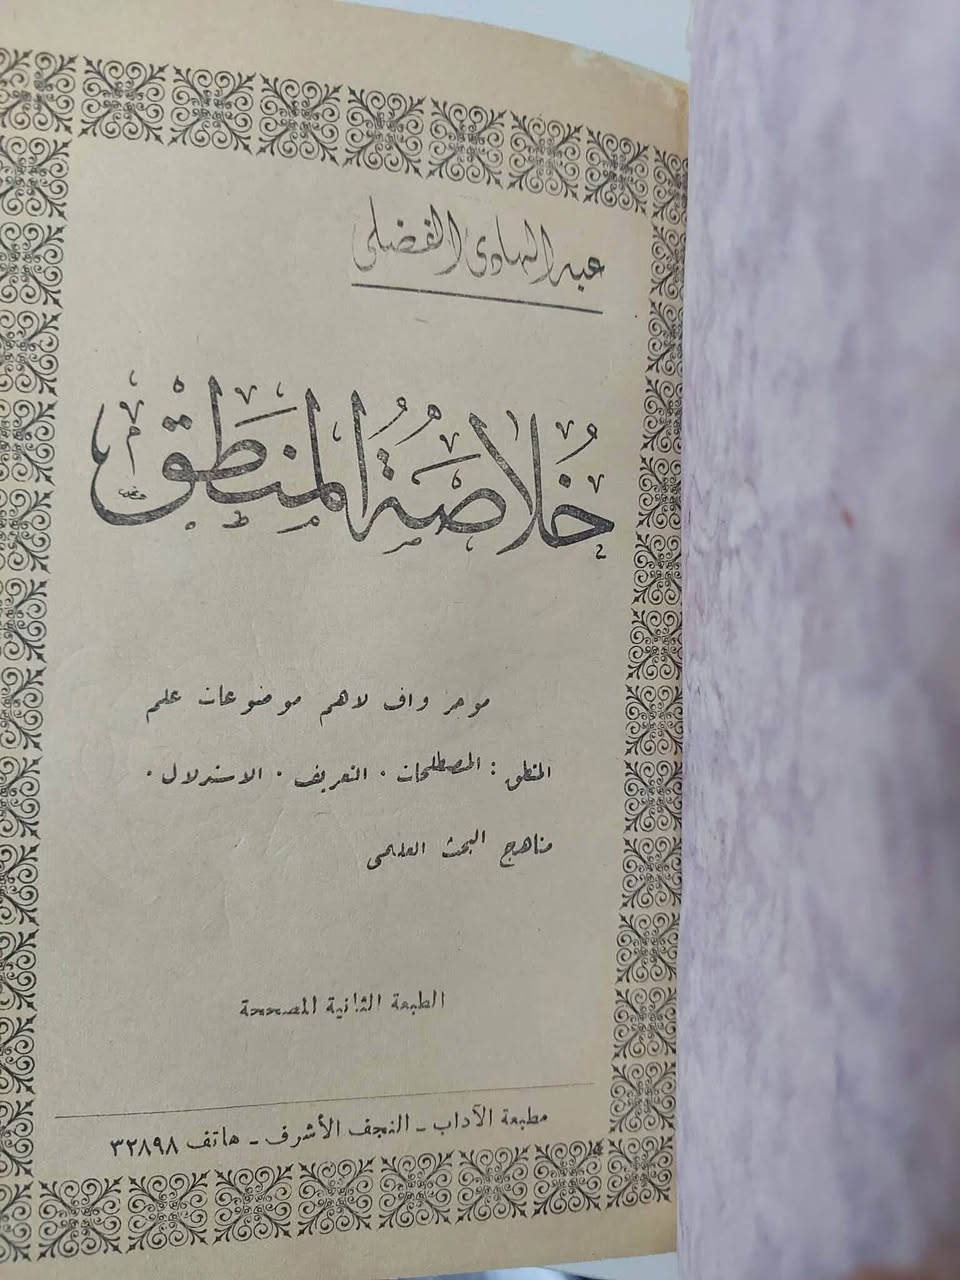 عبد الهادي الفضلي
خُلاصَةُ المنطَقْ
موجز واف لاهم موضوعات علم
المنطق : المصطلحات . التعريف . الاستدلال .
مناهج البحث العلمي
الطبعة الثانية المصححة
مطبعة الآداب ـ النجف الأشرف ـ هاتف ٣٢٨٩٨